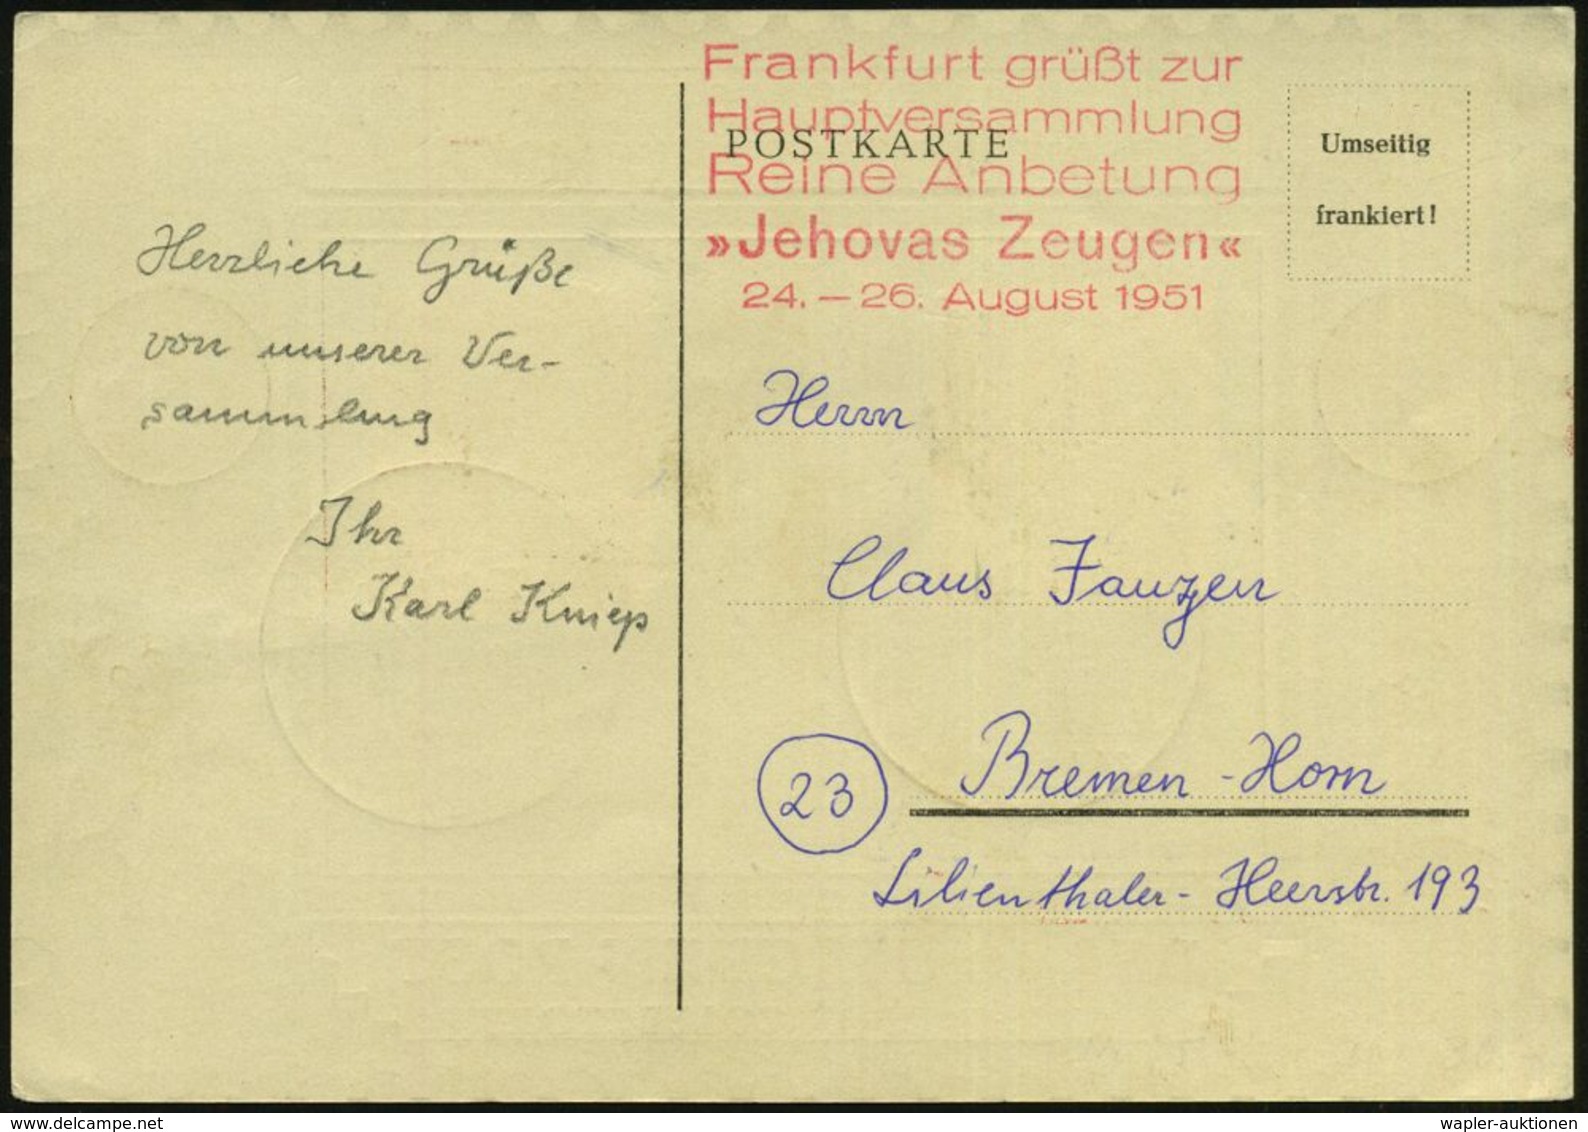 Frankfurt grüßt zur
Hauptversammlung
POSTKARTE
Reine Anbetung
»Jehovas Zeugen«
24. – 26. August 1951
Umseitig
frankiert!
Herzliche Grüße
von unserer Ver-
sammlung
Ihr
Karl Kniep
Herrn
Claus Fanzen
23 Bremen-Horn
Lilienthaler-Heerstr. 193
www.delcampe.net
wapler-auktionen